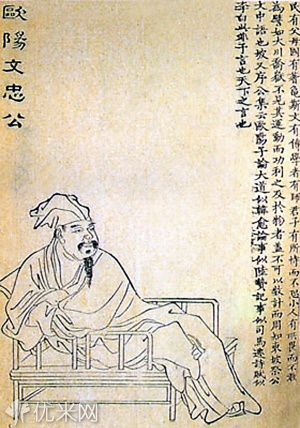 民有父母國有蓍龜斯文有傳學者有師君子有所恃而不恐小人有所畏而不敢
為譬如大川喬嶽不見其運動而功利之及於物者蓋不可以數計而周知東坡祭公
文中語也坡又序公集云歐陽子論大道似韓愈論事似陸贄記事似司馬遷詩賦似
李白此非予言也天下之言也
歐陽文忠公
优米网